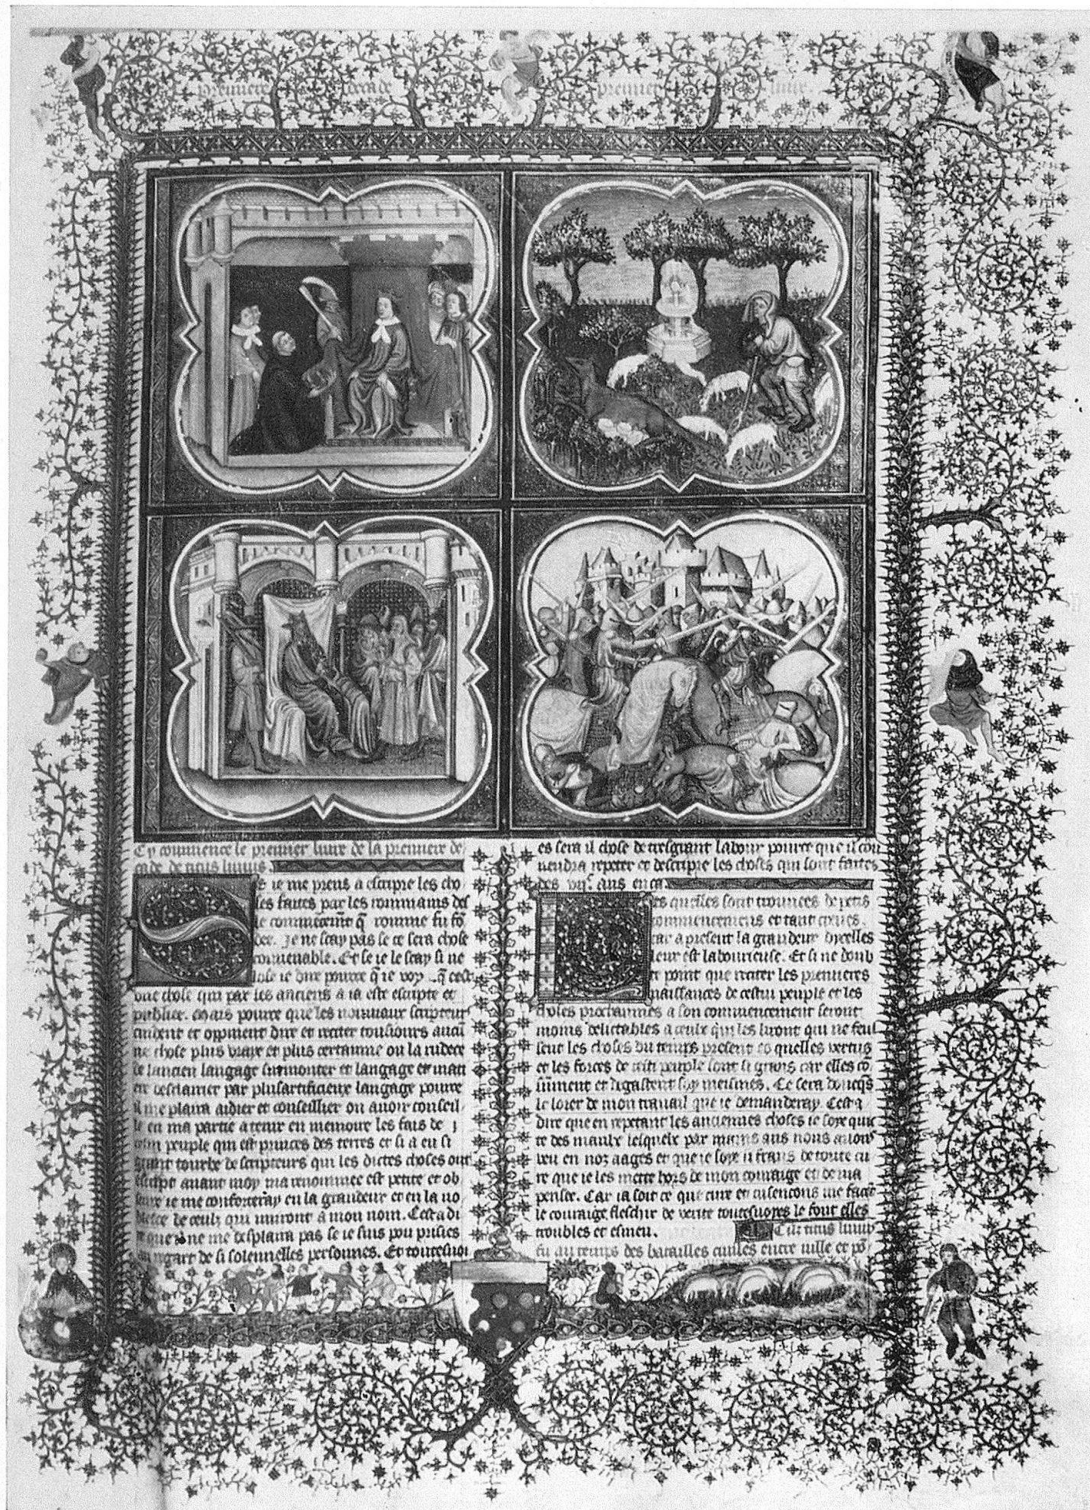 premiere decade premier livre
Cy commence le premier livre de la premiere de
cade de titus livius.
Se ie me prens a escripre les cho
ses faites par les rommains des
le commencemēt q̄ romme fu fō
dee. Je ne scay pas se ce sera chose
conuenable. Et se ie le scay si ne
lose ie dire pource q̄ ie voy q̄ cest
une chose qui par les anciens a ia este escripte et
publiee. Mais pource que les nouuaux scripteurs
cuident et oppinent dire et reciter tousiours aucu
ne chose plus vraye et plus certainne ou la rudece
de lancien langage surmonter et langage en matt
en desclairier par plus artificieux langage pource
il me plaira aidier et conseillier ou auoir conseil
le en ma partie a tenir en memoire les fais de
peuple qui est princes des terres et si a eu si
grant tourbe de scripteurs qui les dictes choses ont
escript auant moy ma renommee est petite et ob
scure ie me conforteray en la grandeur et en la no
blece de ceulx qui nuiront a mon nom. Cest a di
re que ne me desplaira pas se ie suis pou prisies
au regart de si solennelles personnes. Et toutesuoi
es sera il chose de tresgrant labour pource que il con
uendra repeter et descripre les choses qui sont faites
des vijᶜ. ans en ca.
es quelles sont venues de petis
commencemens et tant creues.
car a present la grandeur dicelles
leur est labourieuse. Et si ne doub
te point que reciter les premieres
naissances de cestui peuple et les
choses prochainnes a son commencement seront
moins delictables a ceulx qui les liront qui ne feul
sent les choses du temps present es quelles vertus
et les forces de cesti peuple sont si grans car elles co
sument et degastent soy meismes. Ce sera doncq̄s
le loier de mon travail que ie demanderay. Cest a
dire que en repetant les anciennes choses ie soye quit
te des maulx lesquelx par mains ans nous auons
veu en noz aages et que ie soye si frans de toute cu
re que ie les mette hors de mon courage et de ma
pensee. Car ia soit ce que cure et cusencons ne facent
le courage fleschir de verite toutesuoies le font elles
troubles et esmeu. Cilz titus liuius
fu au temps des batailles ciuiles entre iulle et po